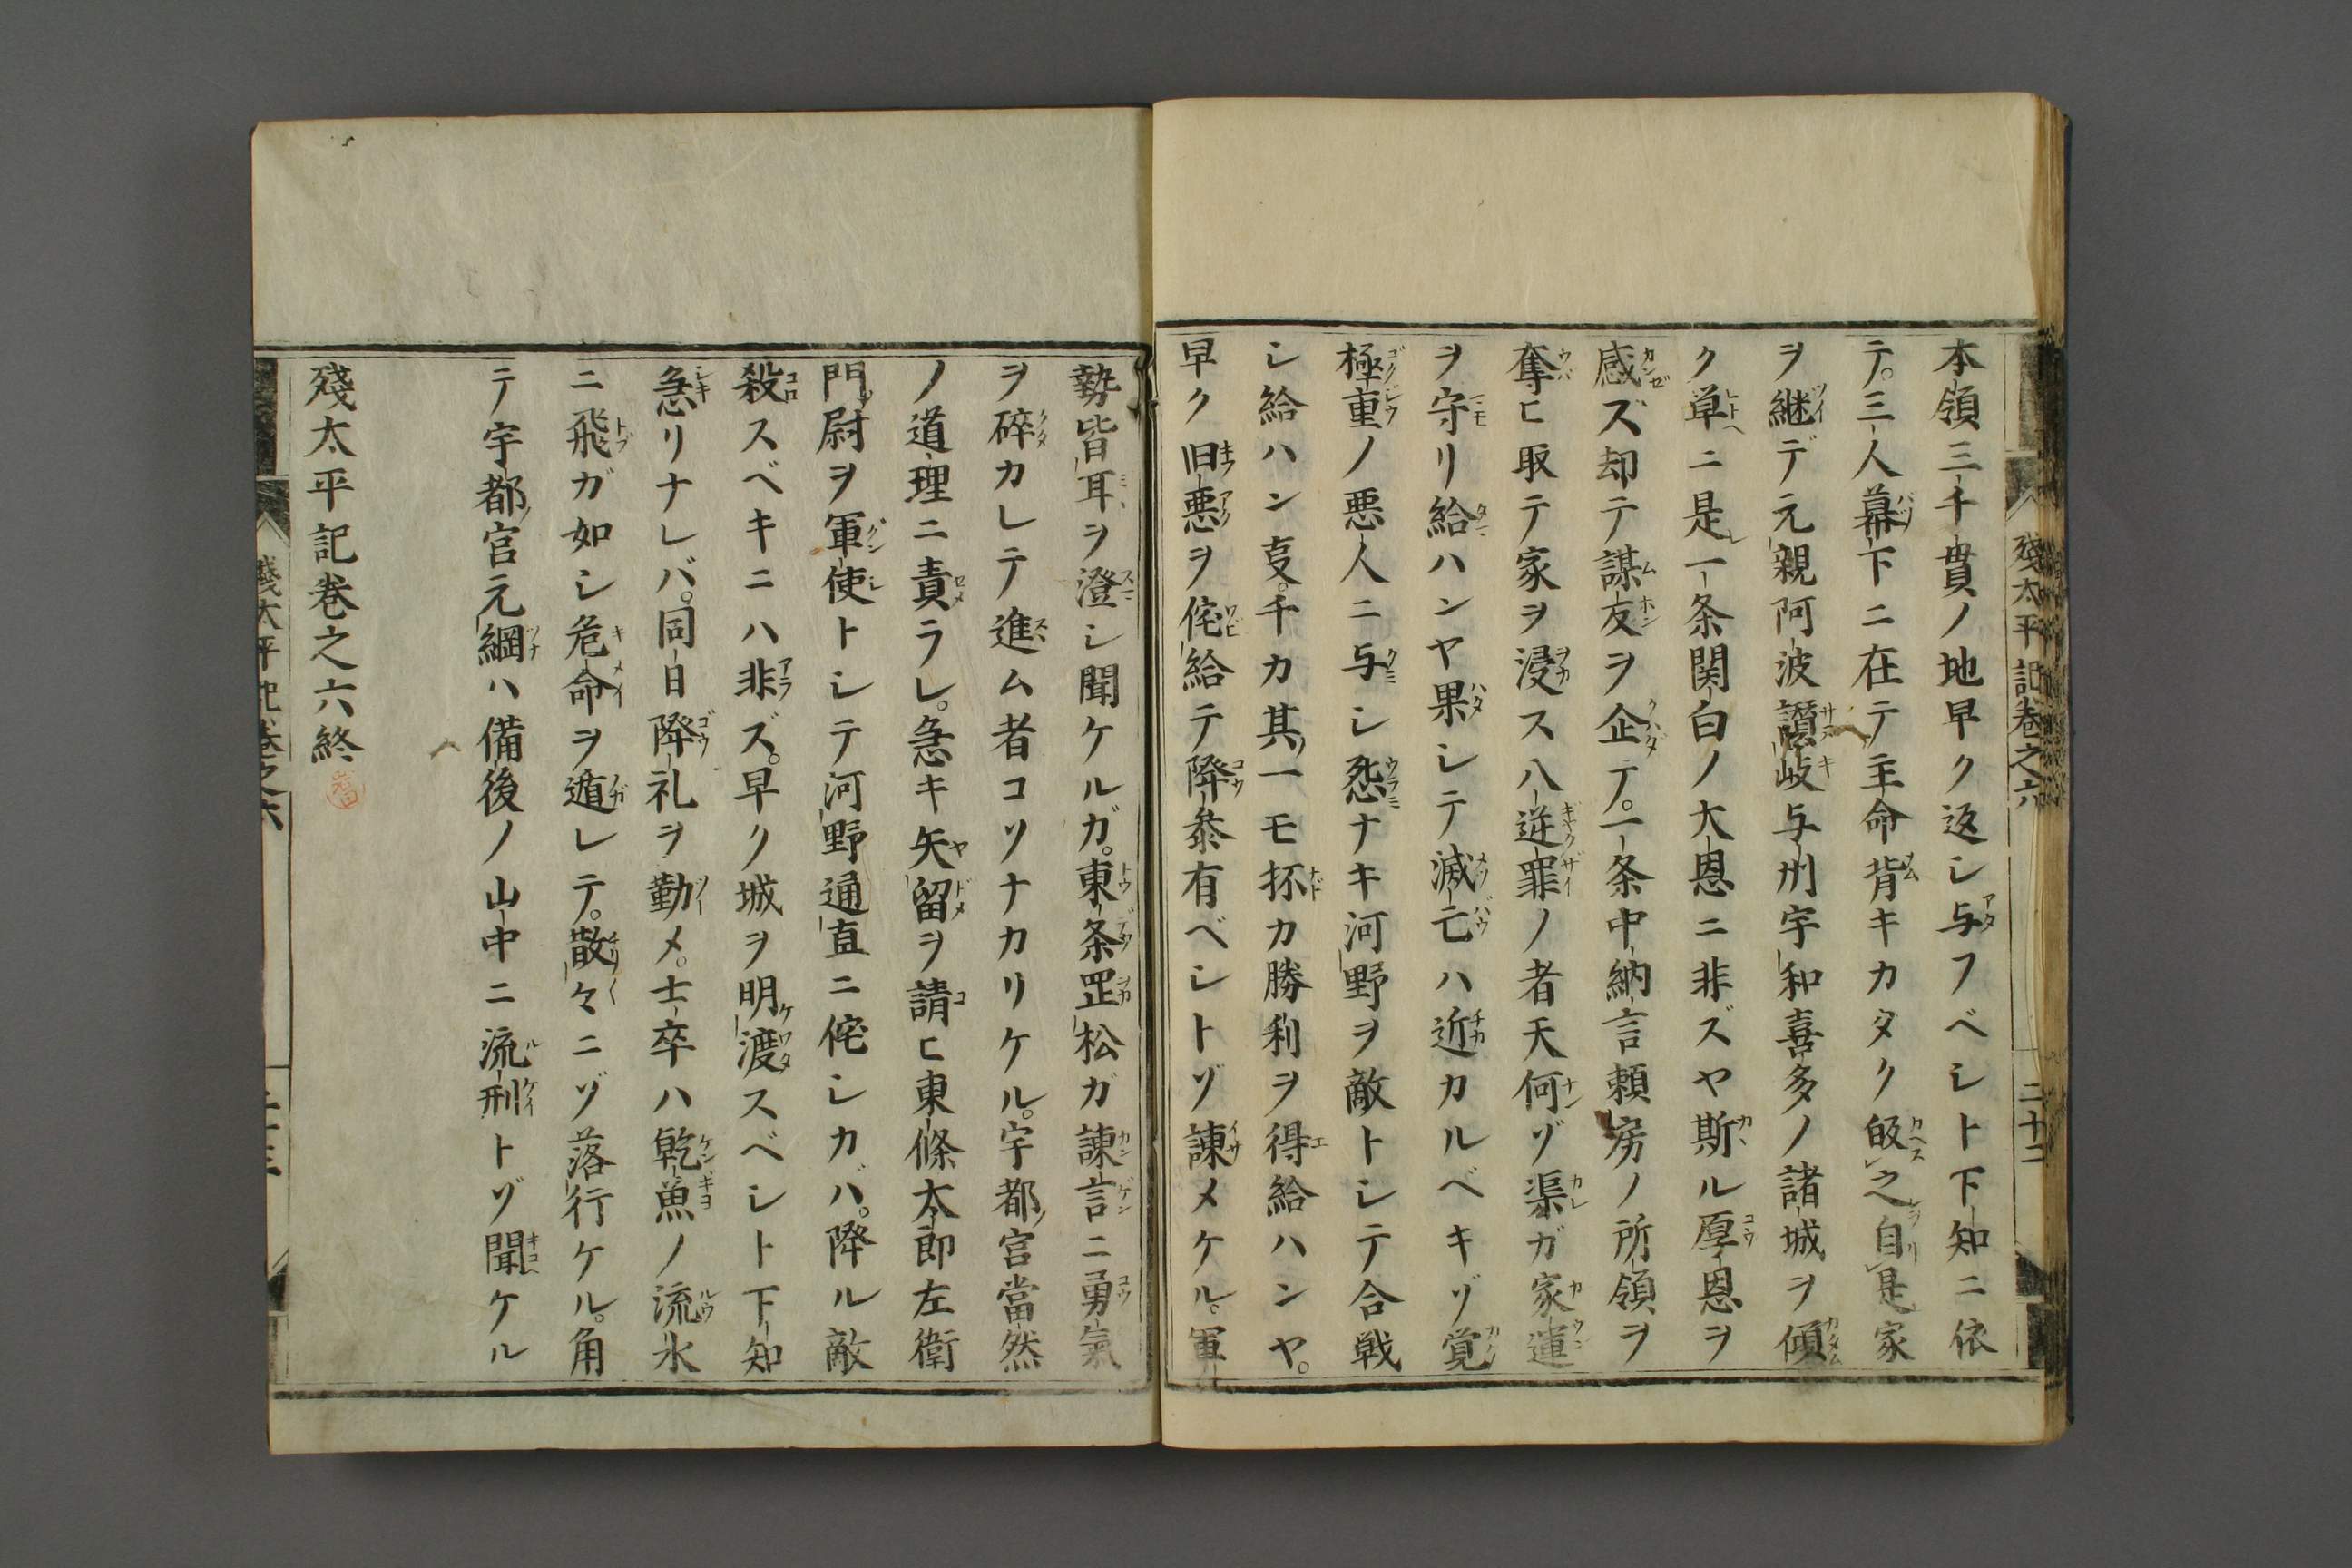 本領三千貫ノ地早ク返シ与フベシト下知ニ依
テ。三人幕下ニ在テ主命背キカタク皈之自是家
ヲ継デ元親阿波讃岐与州宇和喜多ノ諸城ヲ傾
ク単ニ是一条関白ノ大恩ニ非ズヤ斯ル厚恩ヲ
感ズ却テ謀友ヲ企テ。一条中納言頼房ノ所領ヲ
奪ヒ取テ家ヲ浸ス八逆罪ノ者天何ゾ渠ガ家運
ヲ守リ給ハンヤ果シテ滅亡ハ近カルベキゾ覚
極重ノ悪人ニ与シ怨ナキ河野ヲ敵トシテ合戦
シ給ハン叓。千カ其一モ抔カ勝利ヲ得給ハンヤ。
早ク旧悪ヲ侘給テ降参有ベシトゾ諌メケル。軍
勢皆耳ヲ澄シ聞ケルガ。東条罡松ガ諌言ニ勇氣
ヲ碎カレテ進ム者コソナカリケル。宇都宮當然
ノ道理ニ責ラレ。急キ矢留ヲ請ヒ東條太郎左衛
門尉ヲ軍使トシテ河野通直ニ侘シカバ。降ル敵
殺スベキニハ非ズ。早ク城ヲ明渡スベシト下知
急リナレバ。同日降礼ヲ勤メ。士卒ハ乾魚ノ流水
ニ飛ガ如シ危命ヲ遁レテ。散々ニゾ落行ケル。角
テ宇都宮元綱ハ備後ノ山中ニ流刑トゾ聞ケル
殘太平記巻之六終
殘太平記巻之六
二十二
殘太平記巻之六